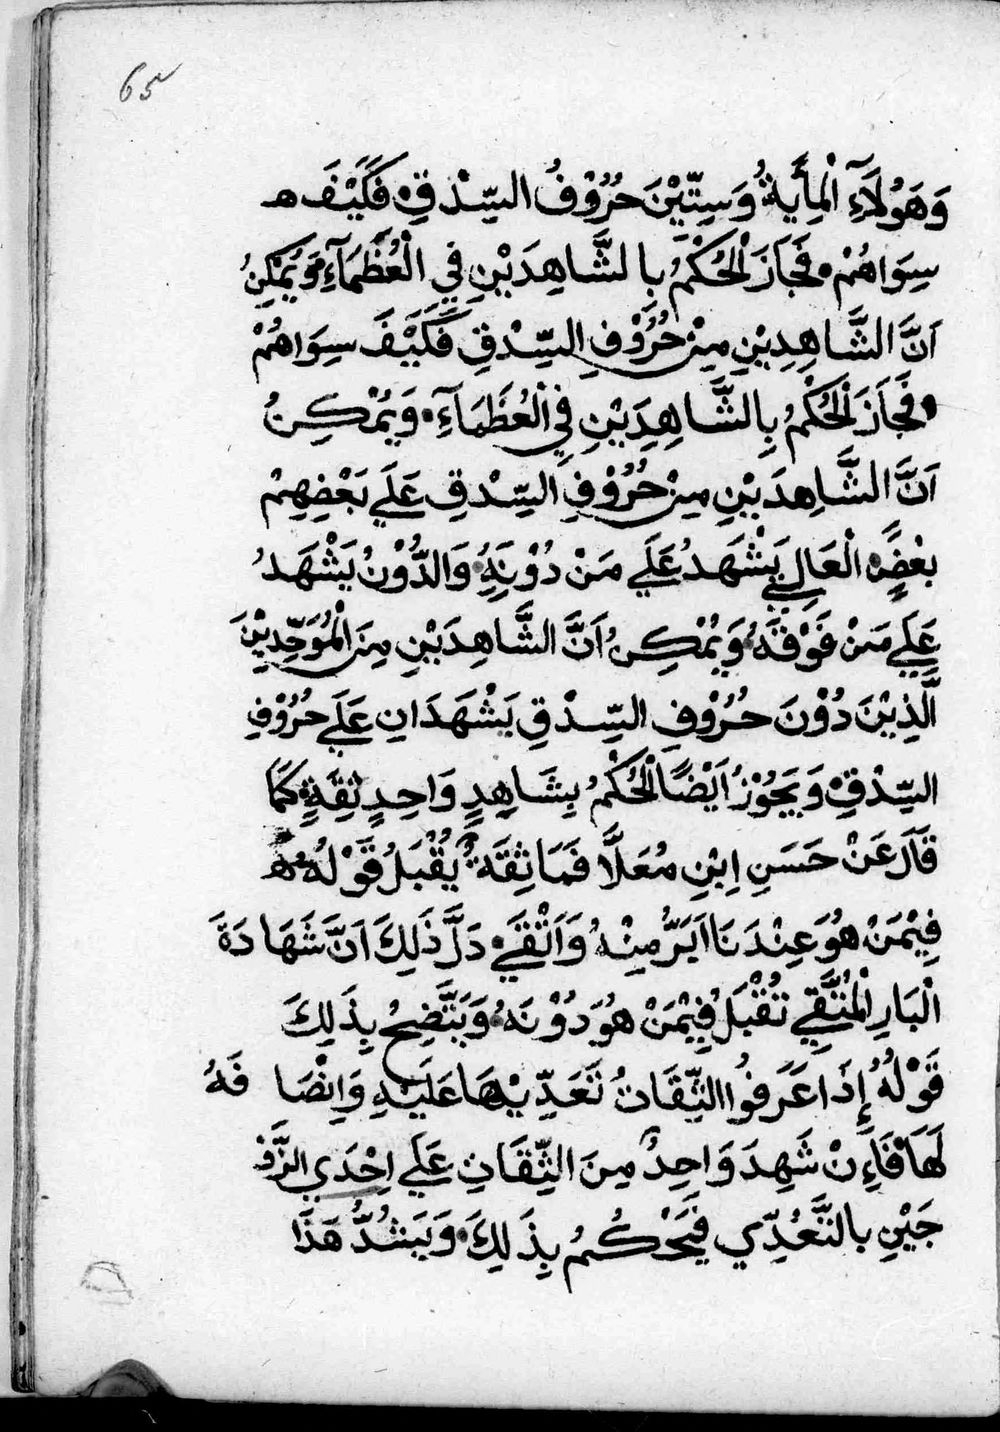 65
وَهَؤُلَآءِ الْمِأَيةُ وَسِتِّيْنَ حُرُوْفُ السِّدْقِ فَكَيْفَ هـ
سِوَاهُمْ فَجَازَ لْحُكْمُ بِالشَّاهِدَيْنِ فِي الْعُظَمَآءِ وَيُمْكِنُ
اَنَّ الشَّاهِدِيْنِ مِنْ حُرُوْفِ السِّدْقِ فَكَيْفَ سِوَاهُمْ
فَجَازَ لْحُكْمُ بِالشَّاهِدَيْنِ فِيْ الْعُظَمَآءِ وَيُمْكِنُ
اَنَّ الشَّاهِدَيْنِ مِنْ حُرُوْفِ السِّدْقِ عَلَي بَعْضِهِمْ
بعْضًا الْعَالِي يَشْهَدُ عَلَي مَنْ دُوْنَهُ وَالدُّوْنُ يَشْهَدُ
عَلَي مَنْ فَوْقَهُ وَيُمْكِنُ اَنَّ الشَّاهِدَيْنِ مِنَ الْمُوَحِّدِيْنَ
الَّذِيْنَ دُوْنَ حُرُوْفِ السِّدْقِ يَشْهَدَانِ عَلَي حُرُوْفِ
السِّدْقِ وَيَجُوْزُ اَيْضًا لْحُكْمُ بِشَاهِدٍ وَاحِدٍ ثِقَةٍ كَمَا
قَالَ عَنْ حَسَنِ اِبْنِ مُعَلَّا فَمَا ثِقَةٌ يُقْبَلُ قَوْلُهُ هـ
فِيْمَنْ هُوَ عِنْدَنَا اَبَرُّ مِنْهُ وَاَتْقَي دَلَّ ذَلِكَ اَنَّ شَهَادَةَ
الْبَارِ الْمُتَّقِي تُقْبَلُ فِيْمَنْ هُوَ دُوْنَهُ وَيَتَّضِحُ بِذَلِكَ
قَوْلُهُ إِذَا عَرَفُوا الثِّقَاتُ تَعَدِّيْهَا عَلَيْهِ وَاِنْصَافَهُ
لَهَا فَاِءنْ شَهِدَ وَاحِدٌ مِنَ الثِّقَاتِ عَلَي اِحْدَي الزَّوْ
جَيْنِ بالتَّعَدِّي فَيَحْكُمُ بِذَلِكَ وَيَشُدُّ هَذَا